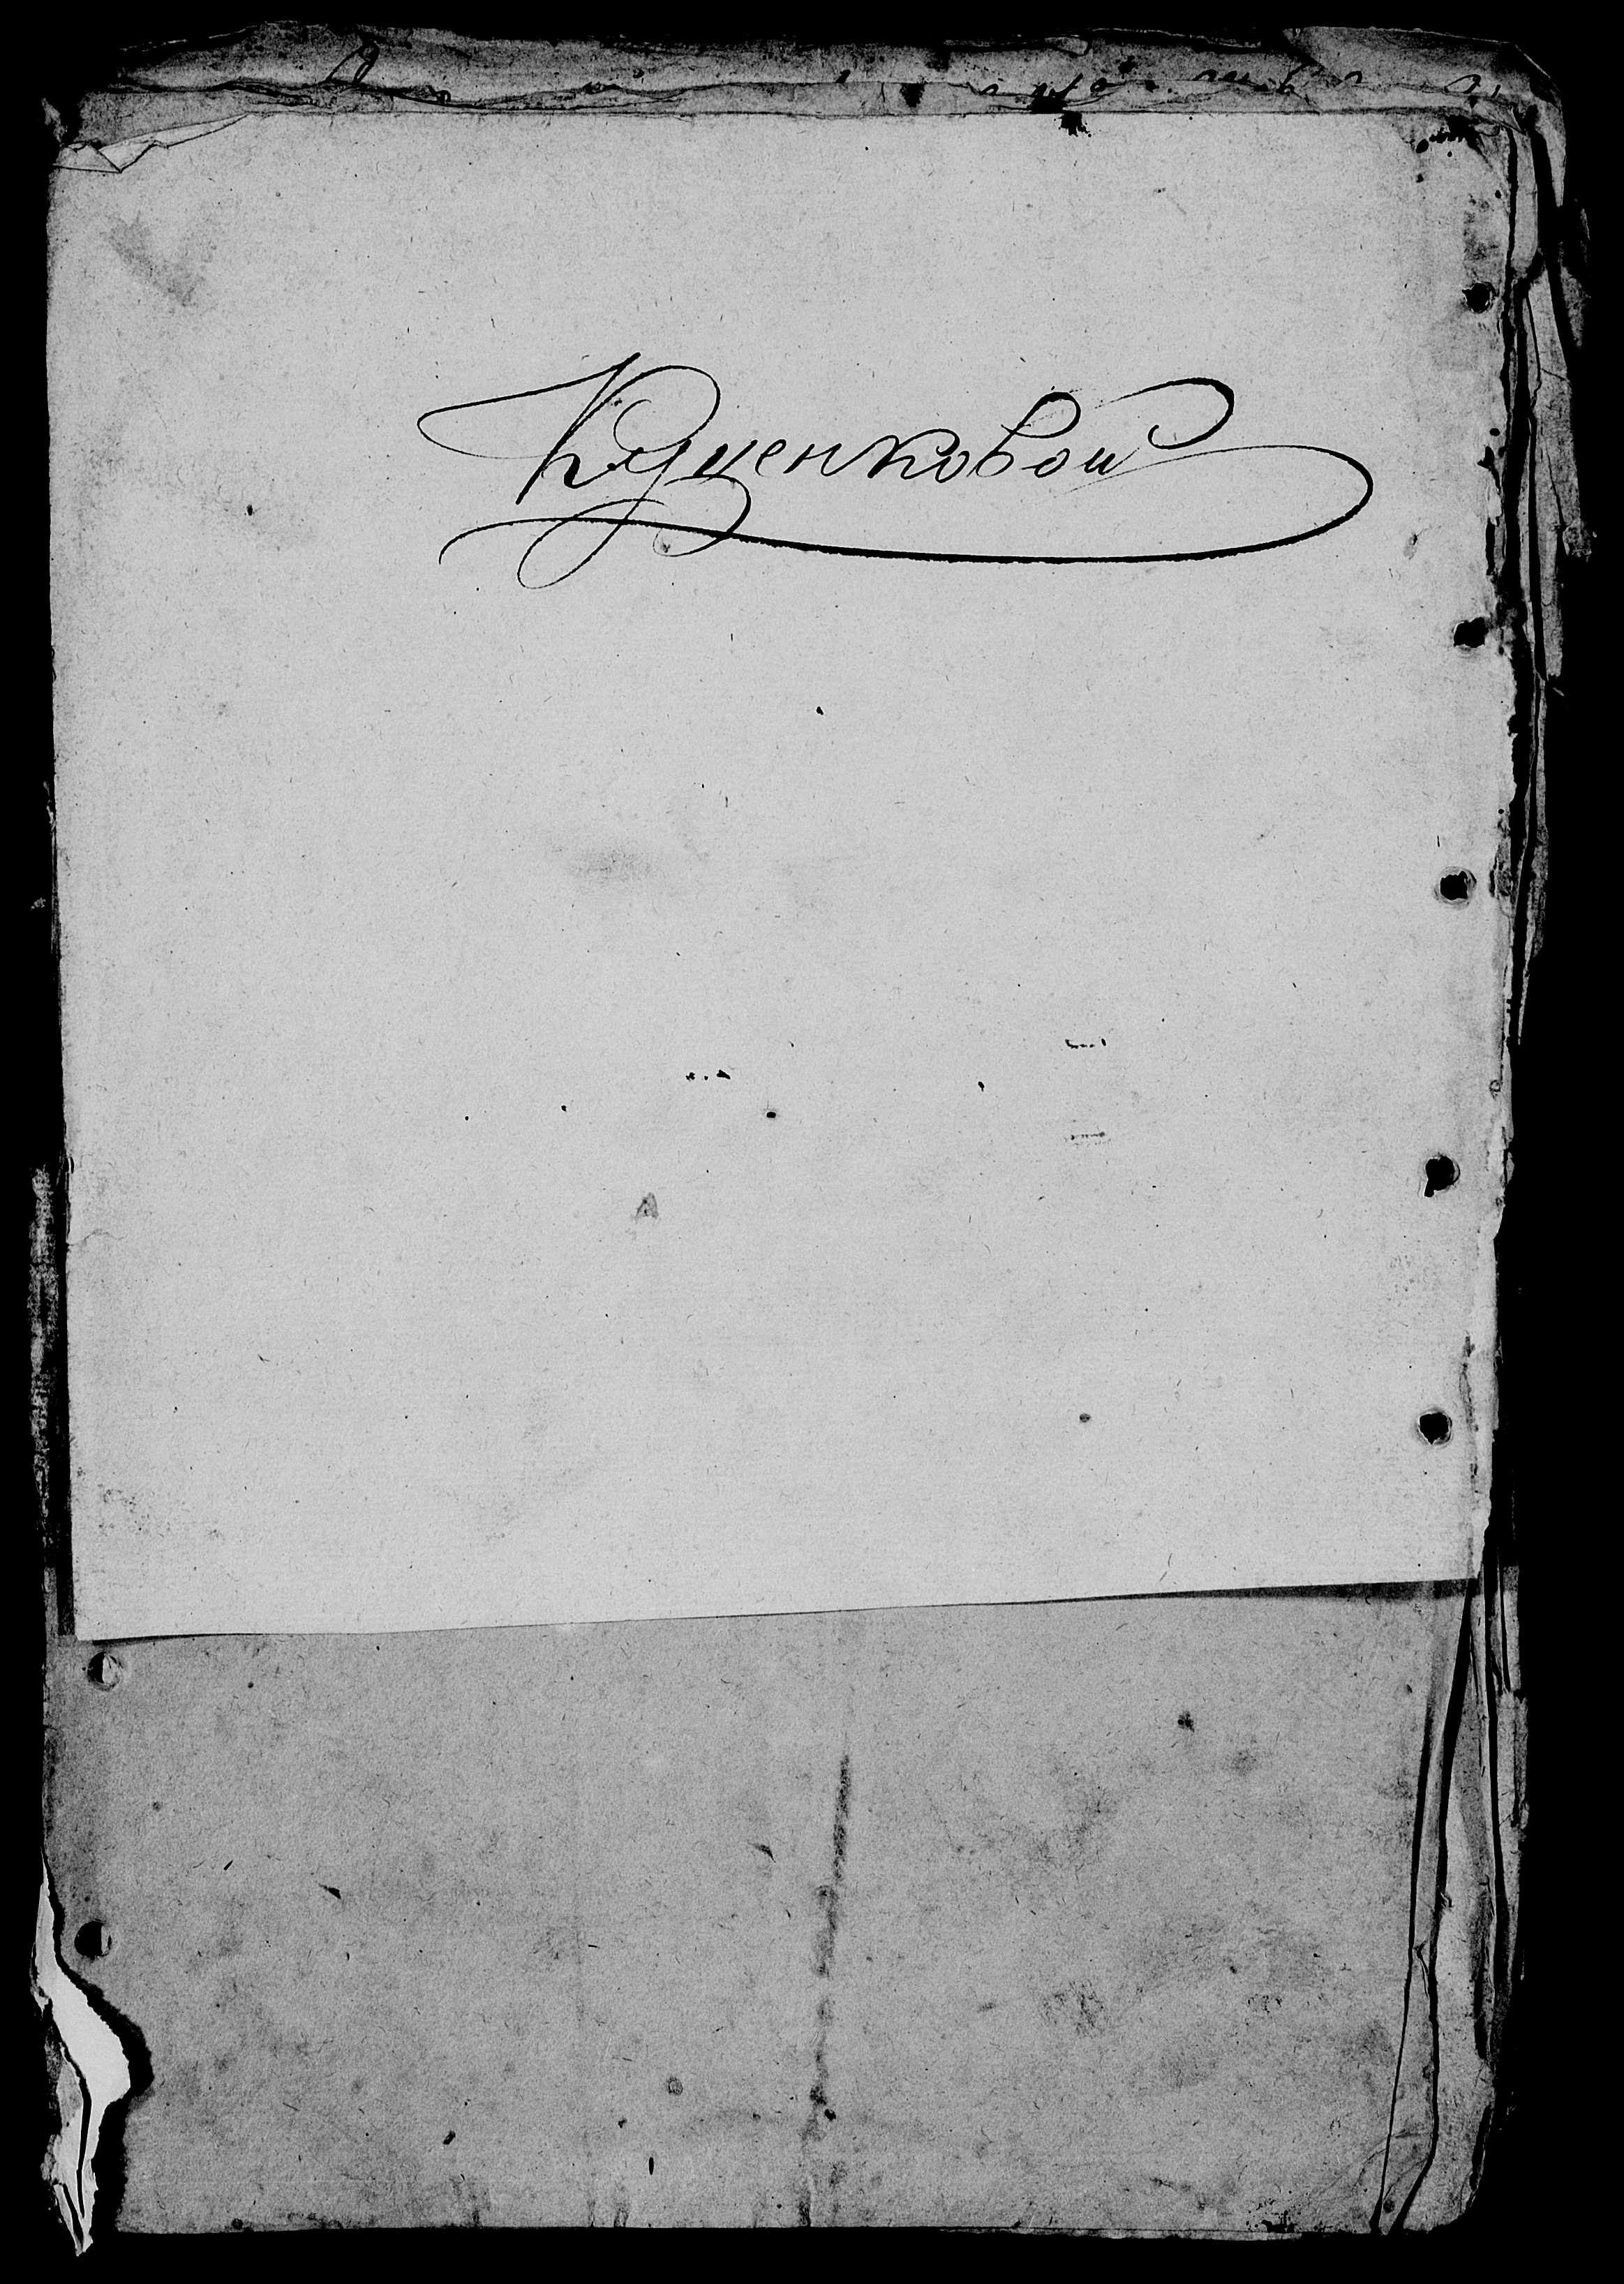 Куценковой